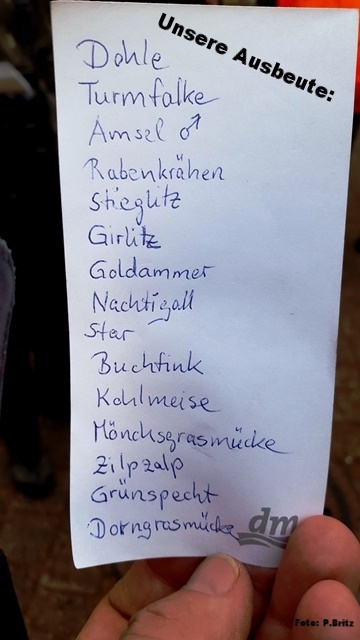 Unsere Ausbeute:
Dohle
Turmfalke
Amsel ♂
Rabenkrähen
Stieglitz
Girlitz
Goldammer
Nachtigall
Star
Buchfink
Kohlmeise
Mönchsgrasmücke
Zilpzalp
Grünspecht
Dorngrasmücke
dm
Foto: P.Britz